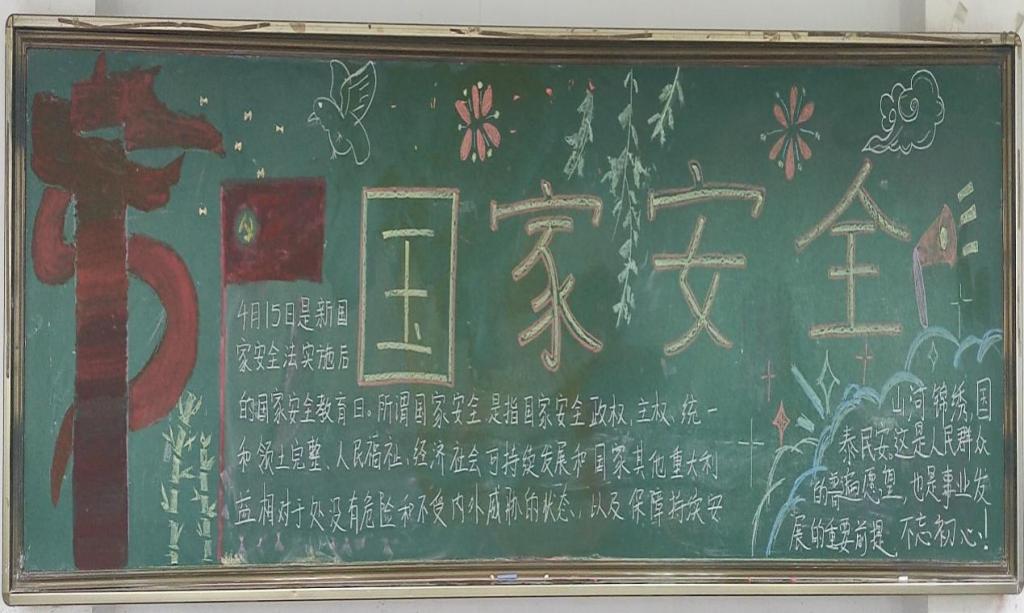 国家安全
4月15日是新国
家安全法实施后
的国家安全教育日。所谓国家安全是指国家安全政权、主权、统一
和领土完整、人民福祉、经济社会可持续发展和国家其他重大利
益相对于处没有危险和不受内外威胁的状态、以及保障持续安
山河锦绣,国
泰民安.这是人民群众
的普遍愿望,也是事业发
展的重要前提,不忘初心!